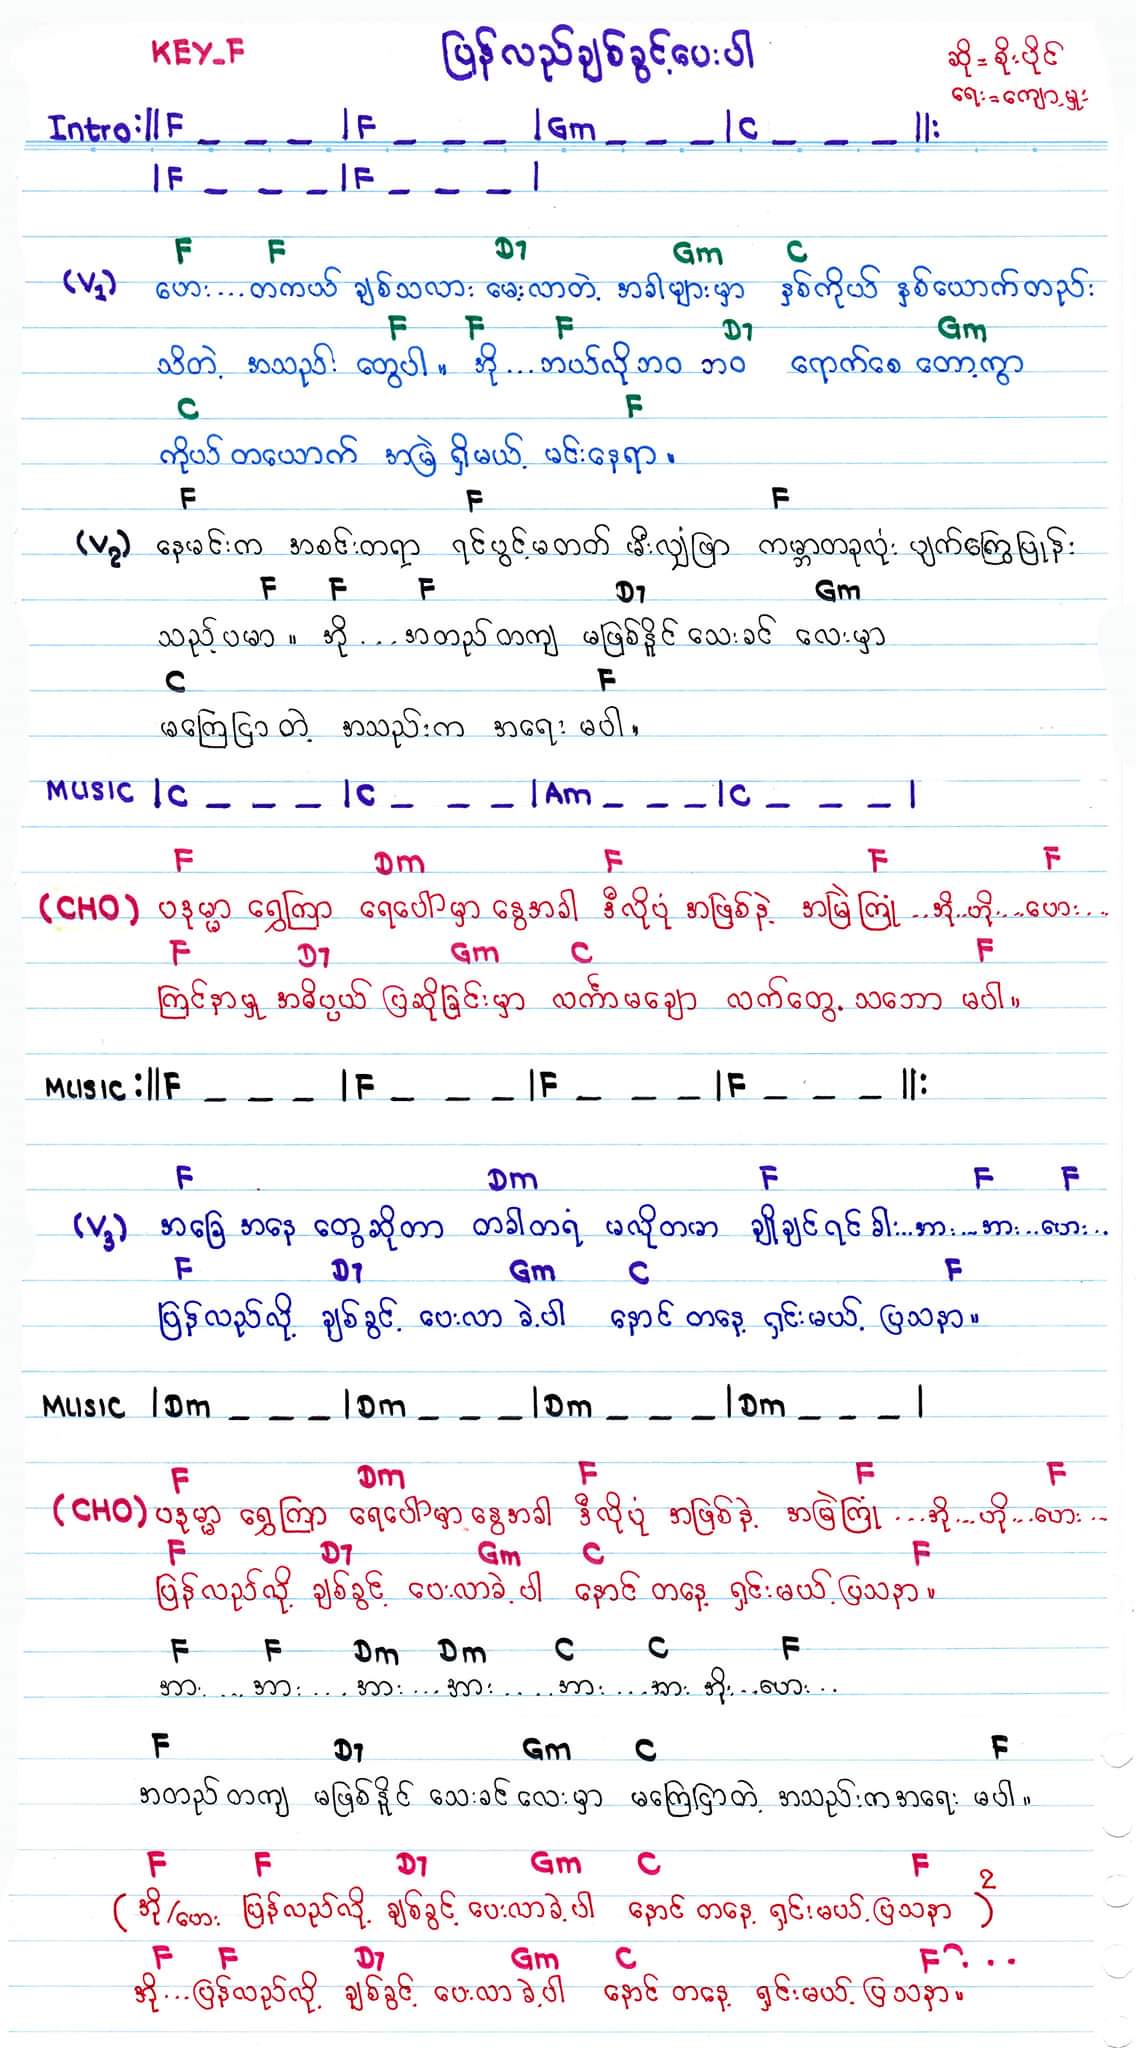 KEY_F ပြန်လည်ချစ်ခွင့်ပေးပါ ဆို=စိုးပိုင်
ရေး=ကျော့မှူး
Intro:||F _ _ _ |F _ _ _ |Gm _ _ _ |C _ _ _ ||:
|F _ _ _ |F _ _ _ |
F F D7 Gm C
(V1) ဟေး... တကယ် ချစ်သလား မေးလာတဲ့ အခါများမှာ နှစ်ကိုယ် နှစ်ယောက်တည်း
F F F D7 Gm
သိတဲ့ အသည်း တွေပါ။ အို...ဘယ်လိုဘဝ ဘဝ ရောက်စေ တော့ကွာ
C F
ကိုယ်တယောက် အမြဲ ရှိမယ့် မင်းနေရာ။
F F F
(V2) နေမင်းက အစင်းတရာ ရင်ဖွင့်မတတ် မီးလျှံဖြာ ကမ္ဘာတခုလုံး ပျက်ကြွေပြုန်း
F F F D7 Gm
သည့်ပမာ။ အို ...အတည်တကျ မဖြစ်နိုင် သေးခင် လေးမှာ
C F
မကြေငြာ တဲ့ အသည်းက အရေး မပါ။
MUSIC |C _ _ _ |C _ _ _ |Am _ _ _ |C _ _ _ |
F Dm F F F
(CHO) ပဒုမ္မာ ရွှေကြာ ရေပေါ်မှာ နွေအခါ ဒီလိုပုံ အဖြစ်နဲ့ အမြဲကြုံ ...အို..ဟို...ဟေး...
F D7 Gm C F
ကြင်နာမှု အဓိပ္ပယ် ပြဆိုခြင်းမှာ လင်္ကာမချော လက်တွေ့ သဘော မပါ။
MUSIC:||F _ _ _ |F _ _ _ |F _ _ _ |F _ _ _ ||:
F Dm F F F
(V3) အခြေ အနေ တွေဆိုတာ တခါတရံ မလိုတမာ ချိုချင်ရင် ခါး...အား...အား..ဟေး..
F D7 Gm C F
ပြန်လည်လို့ ချစ်ခွင့် ပေးလာ ခဲ့ပါ နောင် တနေ့ ရှင်းမယ့် ပြသနာ။
MUSIC |Dm _ _ _ |Dm _ _ _ |Dm _ _ _ |Dm _ _ _ |
F Dm F F F
(CHO) ပဒုမ္မာ ရွှေကြာ ရေပေါ်မှာ နွေအခါ ဒီလိုပုံ အဖြစ်နဲ့ အမြဲကြုံ ...အို...ဟို...ဟေး...
F D7 Gm C F
ပြန်လည်လို့ ချစ်ခွင့် ပေးလာခဲ့ပါ နောင် တနေ့ ရှင်းမယ့် ပြသနာ။
F F Dm Dm C C F
အား ... အား ... အား ... အား ... အား ... အား အိုး...ဟေး...
F D7 Gm C F
အတည် တကျ မဖြစ်နိုင် သေးခင်လေးမှာ မကြေငြာတဲ့ အသည်းကအရေး မပါ။
F F D7 Gm C F
(အို/ဟေး ပြန်လည်လို့ ချစ်ခွင့် ပေးလာခဲ့ပါ နောင် တနေ့ ရှင်းမယ့် ပြသနာ)2
F F D7 Gm C F...
အို...ပြန်လည်လို့ ချစ်ခွင့် ပေးလာခဲ့ပါ နောင် တနေ့ ရှင်းမယ့် ပြသနာ။